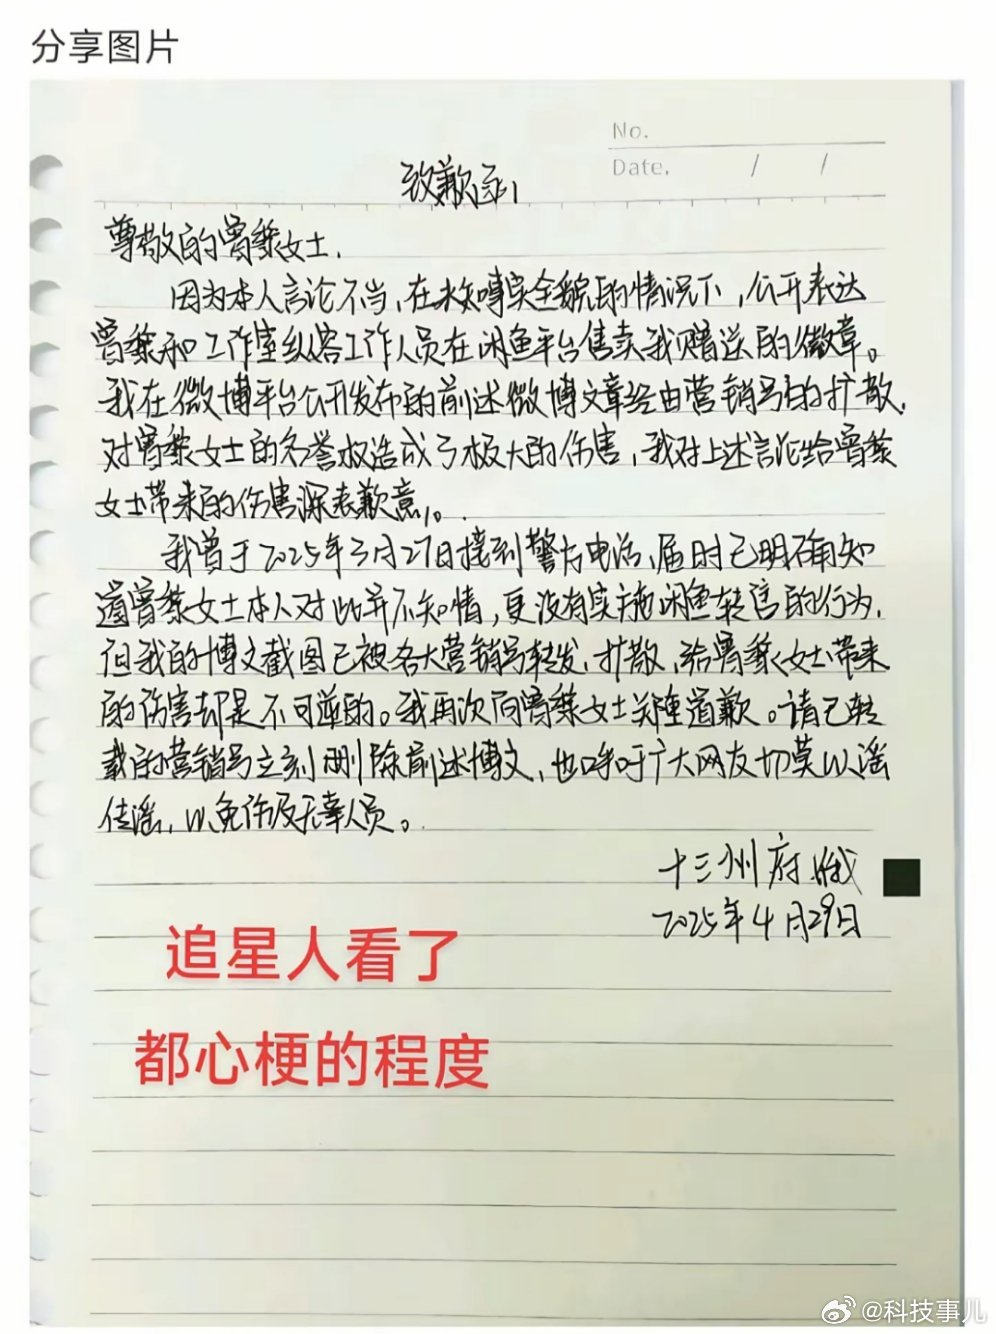 分享图片
No.
Date. / /
致歉函
尊敬的曾黎女士.
因为本人言论不当,在未知晓实全貌的情况下,公开表达
曾黎和工作室纵容工作人员在闲鱼平台售卖我赠送的徽章。
我在微博平台公开发布的前述微博文章经由营销号的扩散,
对曾黎女士的名誉权造成了极大的伤害,我对上述言论给曾黎
女士带来的伤害深表歉意。
我曾于2025年3月27日接到警方电话,届时已明确知
道曾黎女士本人对此并不知情,更没有实施闲鱼转售的行为,
但我的博文截图已被各大营销号转发,扩散,给曾黎女士带来
的伤害却是不可逆的。我再次向曾黎女士郑重道歉。请已转
载的营销号立刻删除前述博文,也呼吁广大网友切莫以谣
传谣,以免伤及无辜人员。
十三州府
2025年4月29日
追星人看了
都心梗的程度
@科技事儿